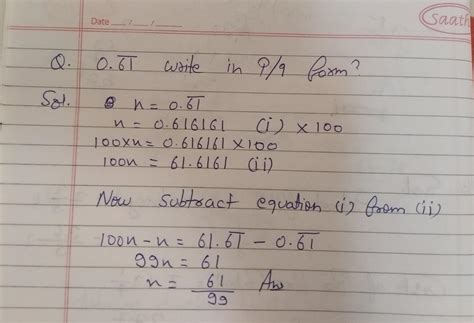 Saath
Date ___/___/___
Q. 0.6̅1̅ write in P/q form?
Sol. n = 0.6̅1̅
n = 0.616161 (i) × 100
100×n = 0.616161 × 100
100n = 61.6161 (ii)
Now subtract equation (i) from (ii)
100n - n = 61.6̅1̅ - 0.6̅1̅
99n = 61
n = 61/99 Ans